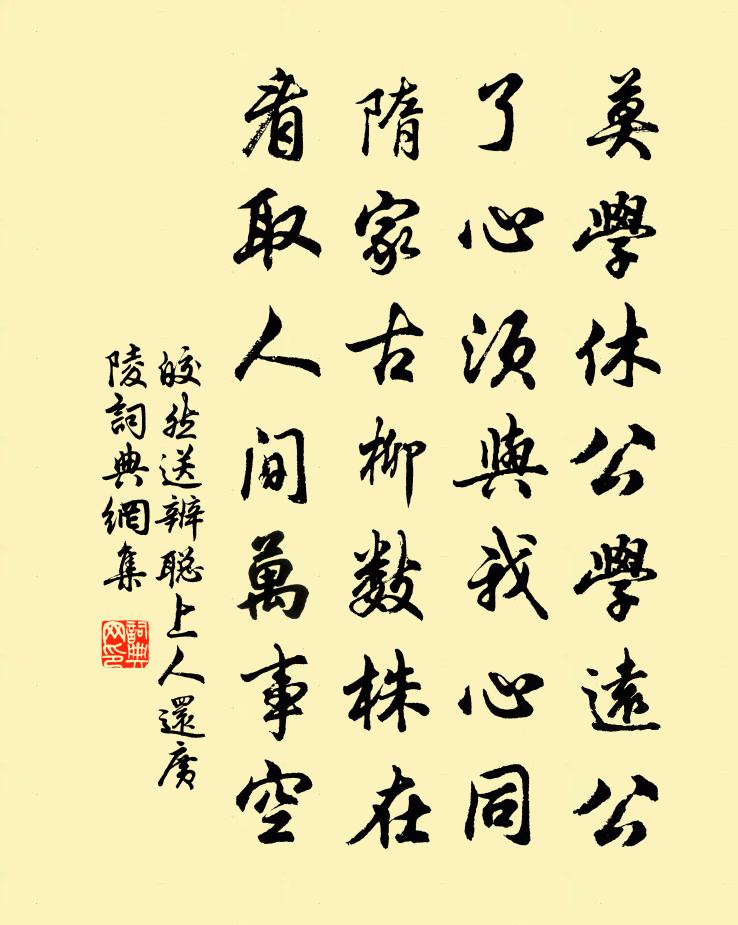 莫學休公學遠公
了心須與我心同
隋家古柳數株在
看取人間萬事空
皎然送辨聰上人還廣
陵詞典網集
詞典网印